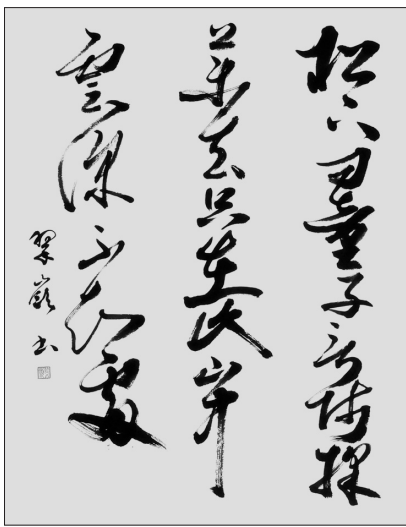 松下問童子言師採
藥去只在此山中
雲深不知處
翠書